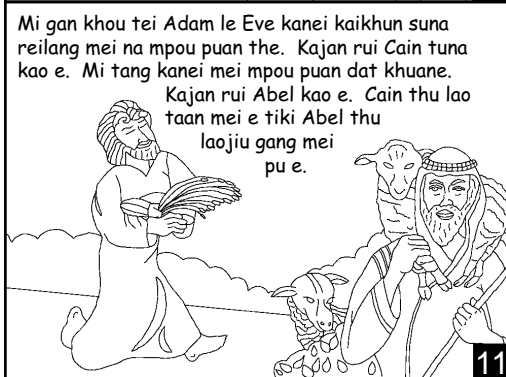 Mi gan khou tei Adam le Eve kanei kaikhun suna
reilang mei na mpou puan the.  Kajan rui Cain tuna
kao e.  Mi tang kanei mei mpou puan dat khuane.
Kajan rui Abel kao e.  Cain thu lao
taan mei e tiki Abel thu
laojiu gang mei
pu e.
11